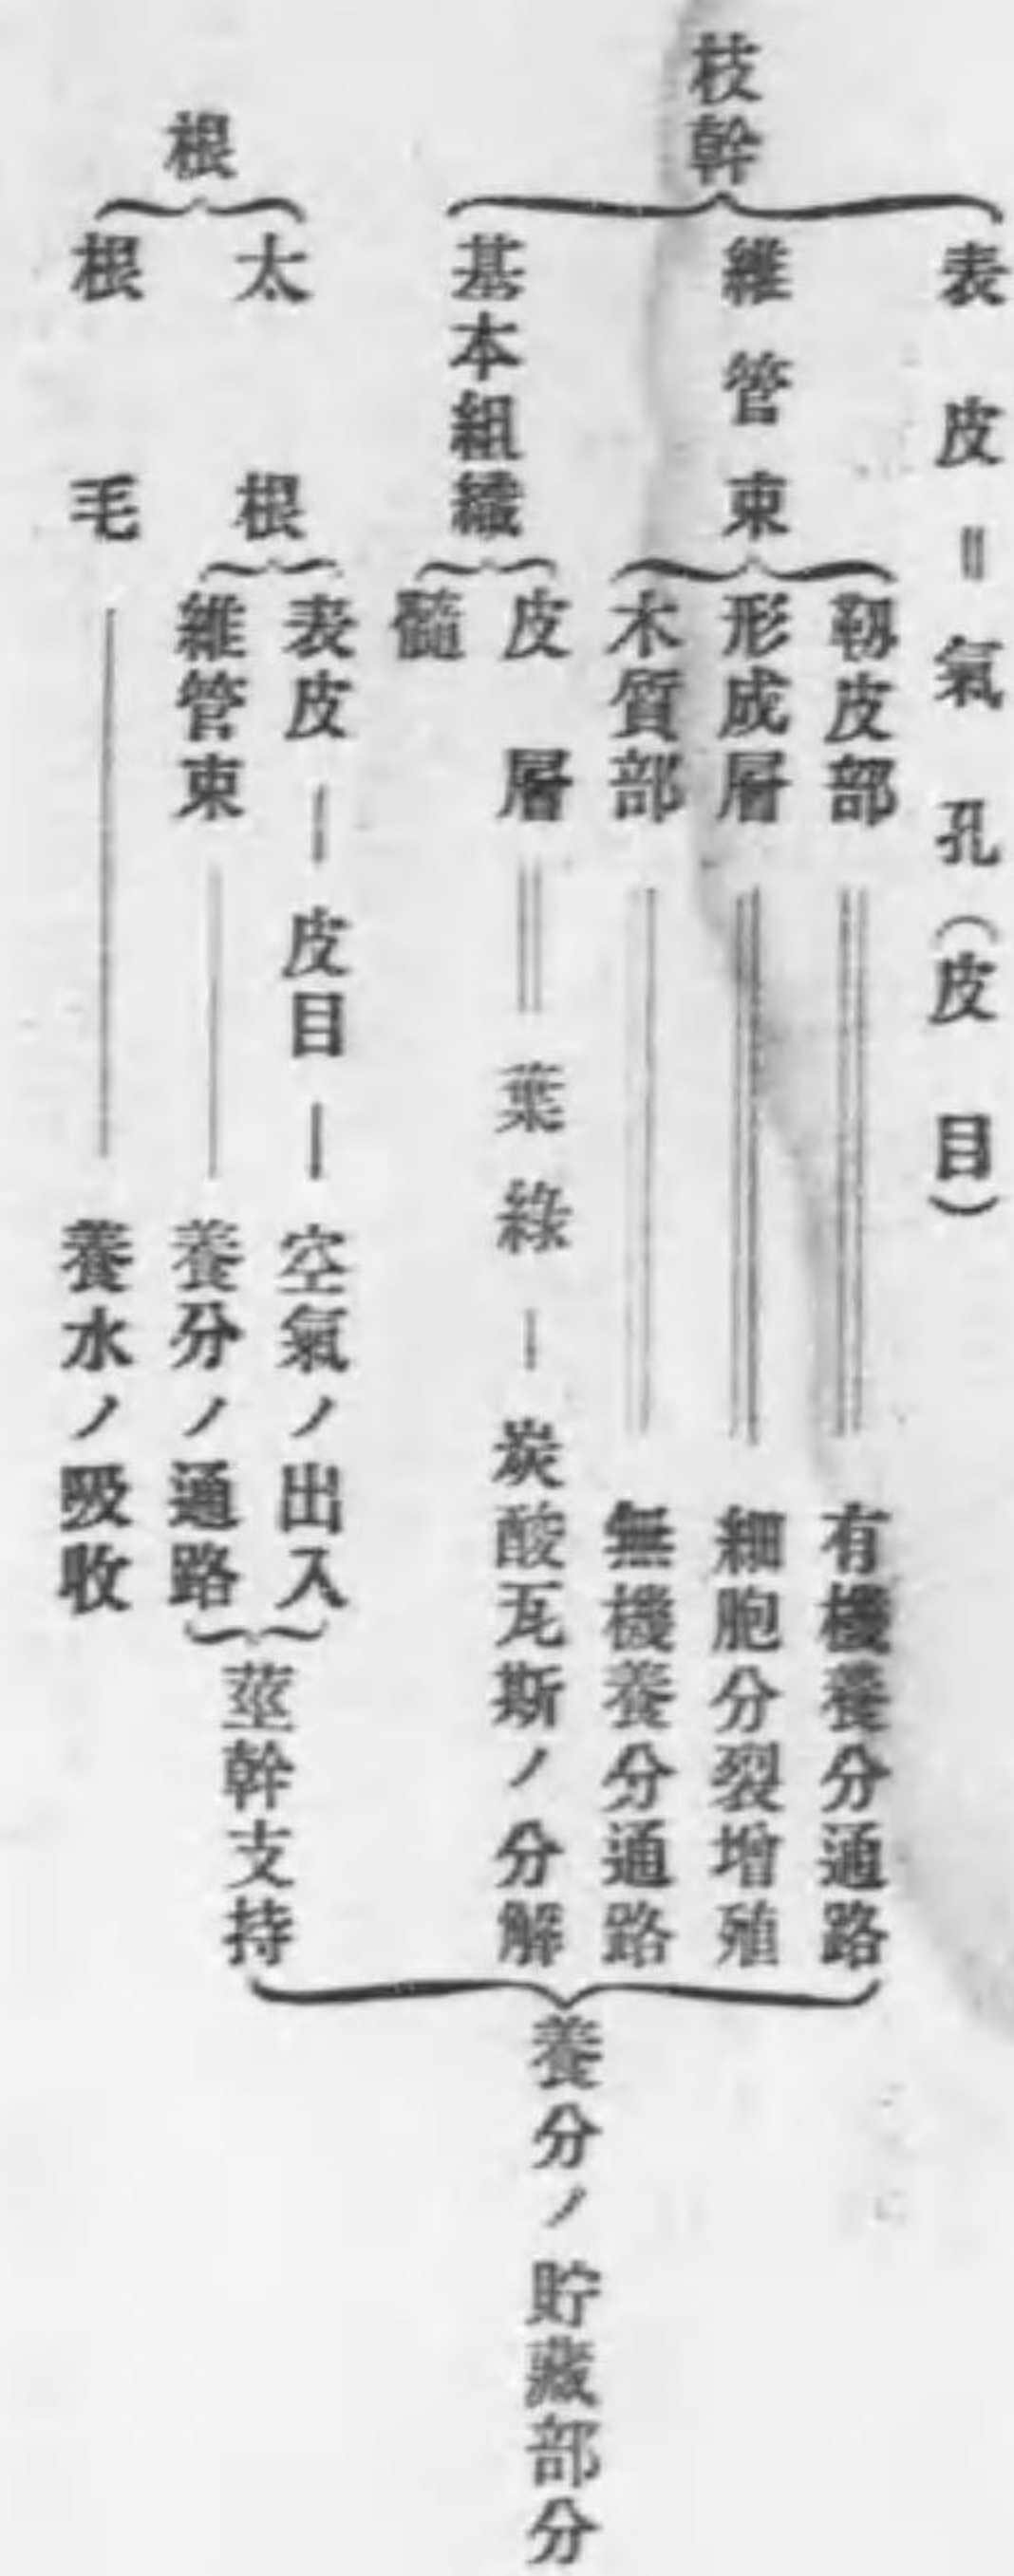 枝幹
表皮＝氣孔（皮目）
維管束
靱皮部＝有機養分通路
形成層＝細胞分裂增殖
木質部＝無機養分通路
基本組織
皮層＝葉綠—炭酸瓦斯ノ分解
髓
根
太根
表皮—皮目—空氣ノ出入
維管束—養分ノ通路
莖幹支持
根毛—養水ノ吸收
養分ノ貯藏部分